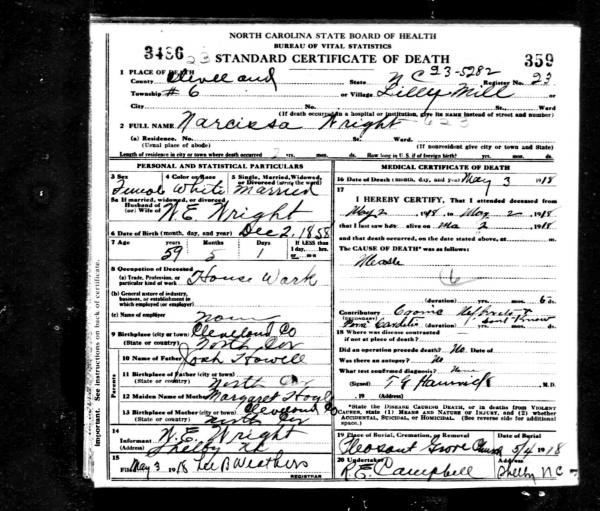 NORTH CAROLINA STATE BOARD OF HEALTH
BUREAU OF VITAL STATISTICS
3486 23 STANDARD CERTIFICATE OF DEATH 359
1 PLACE OF DEATH 23-5282
County Cleveland State N C Register No. 23
Township # 6 or Village Lilly Mill or
City No. St., Ward
(If death occurred in a hospital or institution, give its NAME instead of street and number)
2 FULL NAME Narcissa Wright 623
(a) Residence. No. St. Ward.
(Usual place of abode) (If nonresident give city or town and State)
Length of residence in city or town where death occurred yrs. mos. ds. How long in U. S. if of foreign birth? yrs. mos. ds.
PERSONAL AND STATISTICAL PARTICULARS
3 Sex 4 Color or Race 5 Single, Married, Widowed, or Divorced (write the word)
Female White Married
5a If married, widowed, or divorced
Husband of
(or) Wife of W.E. Wright
6 Date of Birth (month, day, and year) Dec 2, 1858
7 Age years Months Days If LESS than
59 5 1 1 day, hrs.
or min.
8 Occupation of Deceased
(a) Trade, Profession, or particular kind of work House Work
(b) General nature of industry, business, or establishment in which employed (or employer)
(c) Name of employer
9 Birthplace (city or town) Cleveland Co
(State or country) North Car
10 Name of Father Josh Howell
11 Birthplace of Father (city or town)
(State or country) North Car
12 Maiden Name of Mother Margaret Hoyle
13 Birthplace of Mother (city or town) Cleveland Co
(State or country) North Car
Parents
14 Informant W.E. Wright
(Address) Shelby
15 Filed May 3 1918 Lee B Weathers
REGISTRAR
Important. See instructions on back of certificate.
MEDICAL CERTIFICATE OF DEATH
16 Date of Death (month, day, and year) May 3 1918
17
I HEREBY CERTIFY, That I attended deceased from
May 2 1918, to May 2 1918
that I last saw her alive on Ma 2 1918
and that death occurred, on the date stated above, at m.
The CAUSE OF DEATH* was as follows:
Measle
6
(duration) yrs. mos. 6 ds.
Contributory
(SECONDARY)
(duration) yrs. mos. ds.
18 Where was disease contracted
if not at place of death?
Did an operation precede death? No Date of
Was there an autopsy? No
What test confirmed diagnosis?
(Signed) M.D.
, 19 (Address)
*State the DISEASE CAUSING DEATH, or in deaths from VIOLENT CAUSES, state (1) MEANS AND NATURE OF INJURY, and (2) whether ACCIDENTAL, SUICIDAL, or HOMICIDAL. (See reverse side for additional space).
19 Place of Burial, Cremation, or Removal Date of Burial
Pleasant Grove Church 5/4 1918
20 Undertaker Address
R.E. Campbell Shelby NC